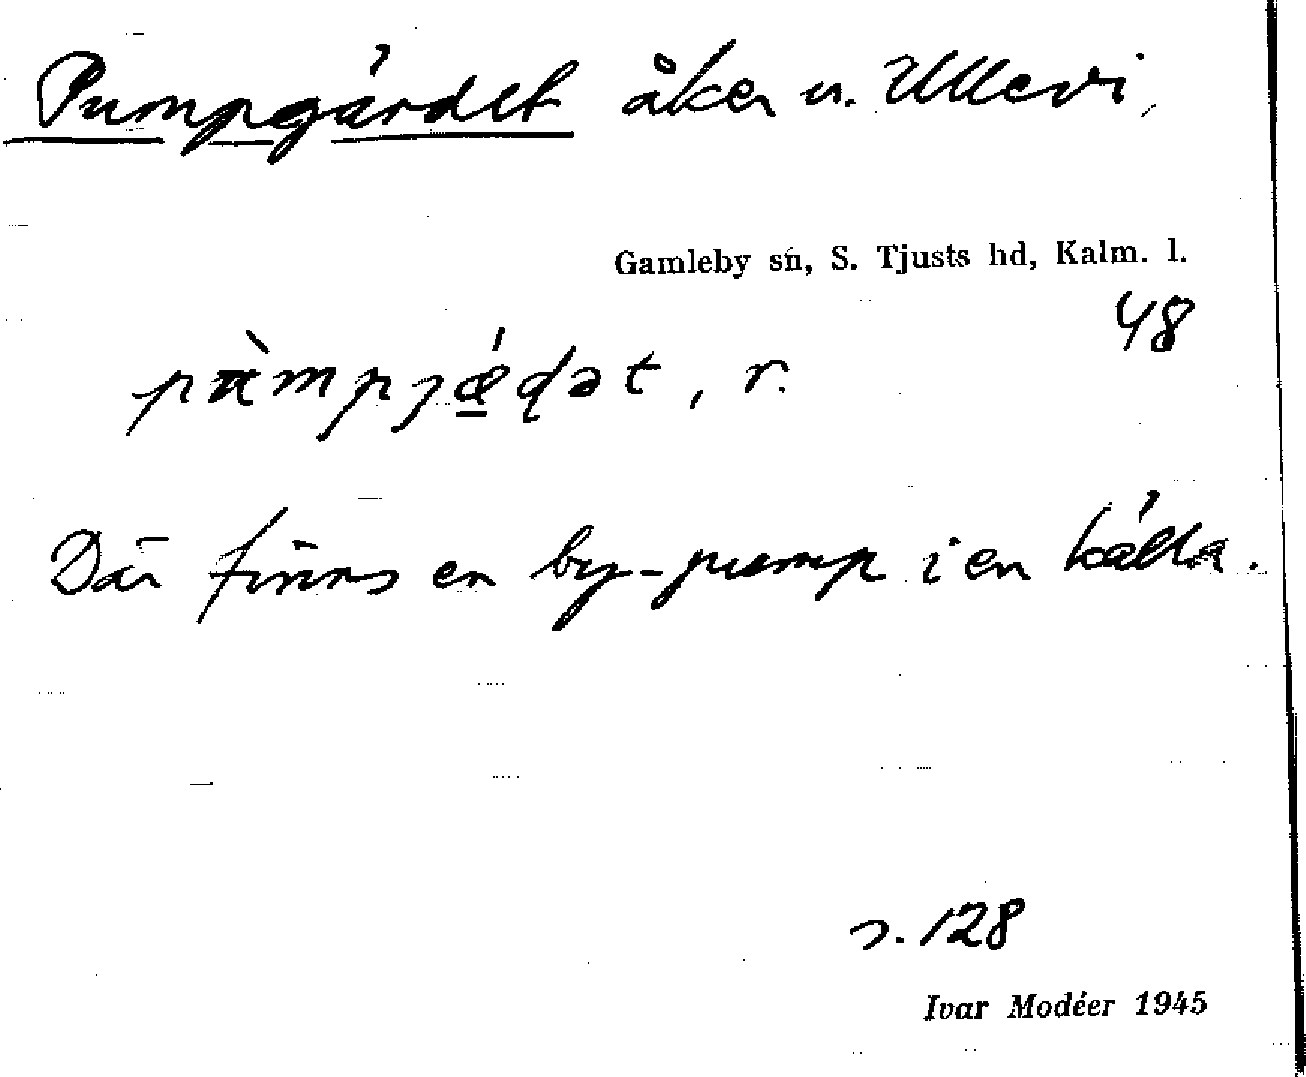 Pumpgärdet åker u. Ullevi,
Gamleby sn, S. Tjusts hd, Kalm. l.
48
r.
Där finns en by-pump i en källa.
s. 128
Ivar Modéer 1945